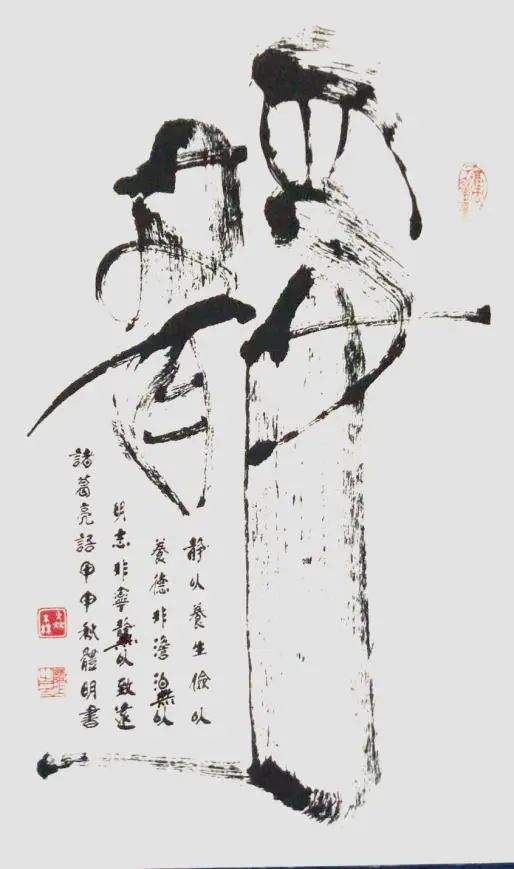 靜
静以養生儉以
養德非澹泊無以
明志非寧靜無以致遠
諸葛亮語甲申秋體明書